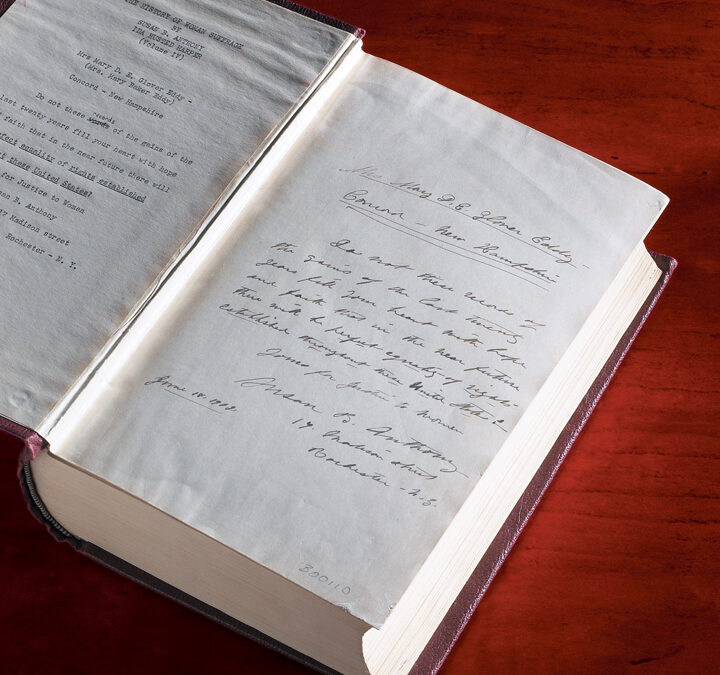 THE HISTORY OF WOMAN SUFFRAGE
BY
SUSAN B. ANTHONY
IDA HUSTED HARPER
(Volume IV)
Mrs Mary D. E. Glover Eddy -
(Mrs. Mary Baker Eddy)
Concord - New Hampshire
records
Do not these of the gains of the
last twenty years fill your heart with hope
faith that in the near future there will
fect equality of rights established
t these United States?
for Justice to Women
an B. Anthony
7 Madison street
Rochester - N. Y.
Mrs Mary D. E. Glover Eddy -
Concord - New Hampshire
Do not these records of
the gains of the last twenty
years fill your heart with hope
and faith that in the near future
there will be perfect equality of rights
established throughout these United States?
Yours for Justice to Women
June 18. 1903.
Susan B. Anthony
17 Madison street
Rochester - N.Y.
B00110